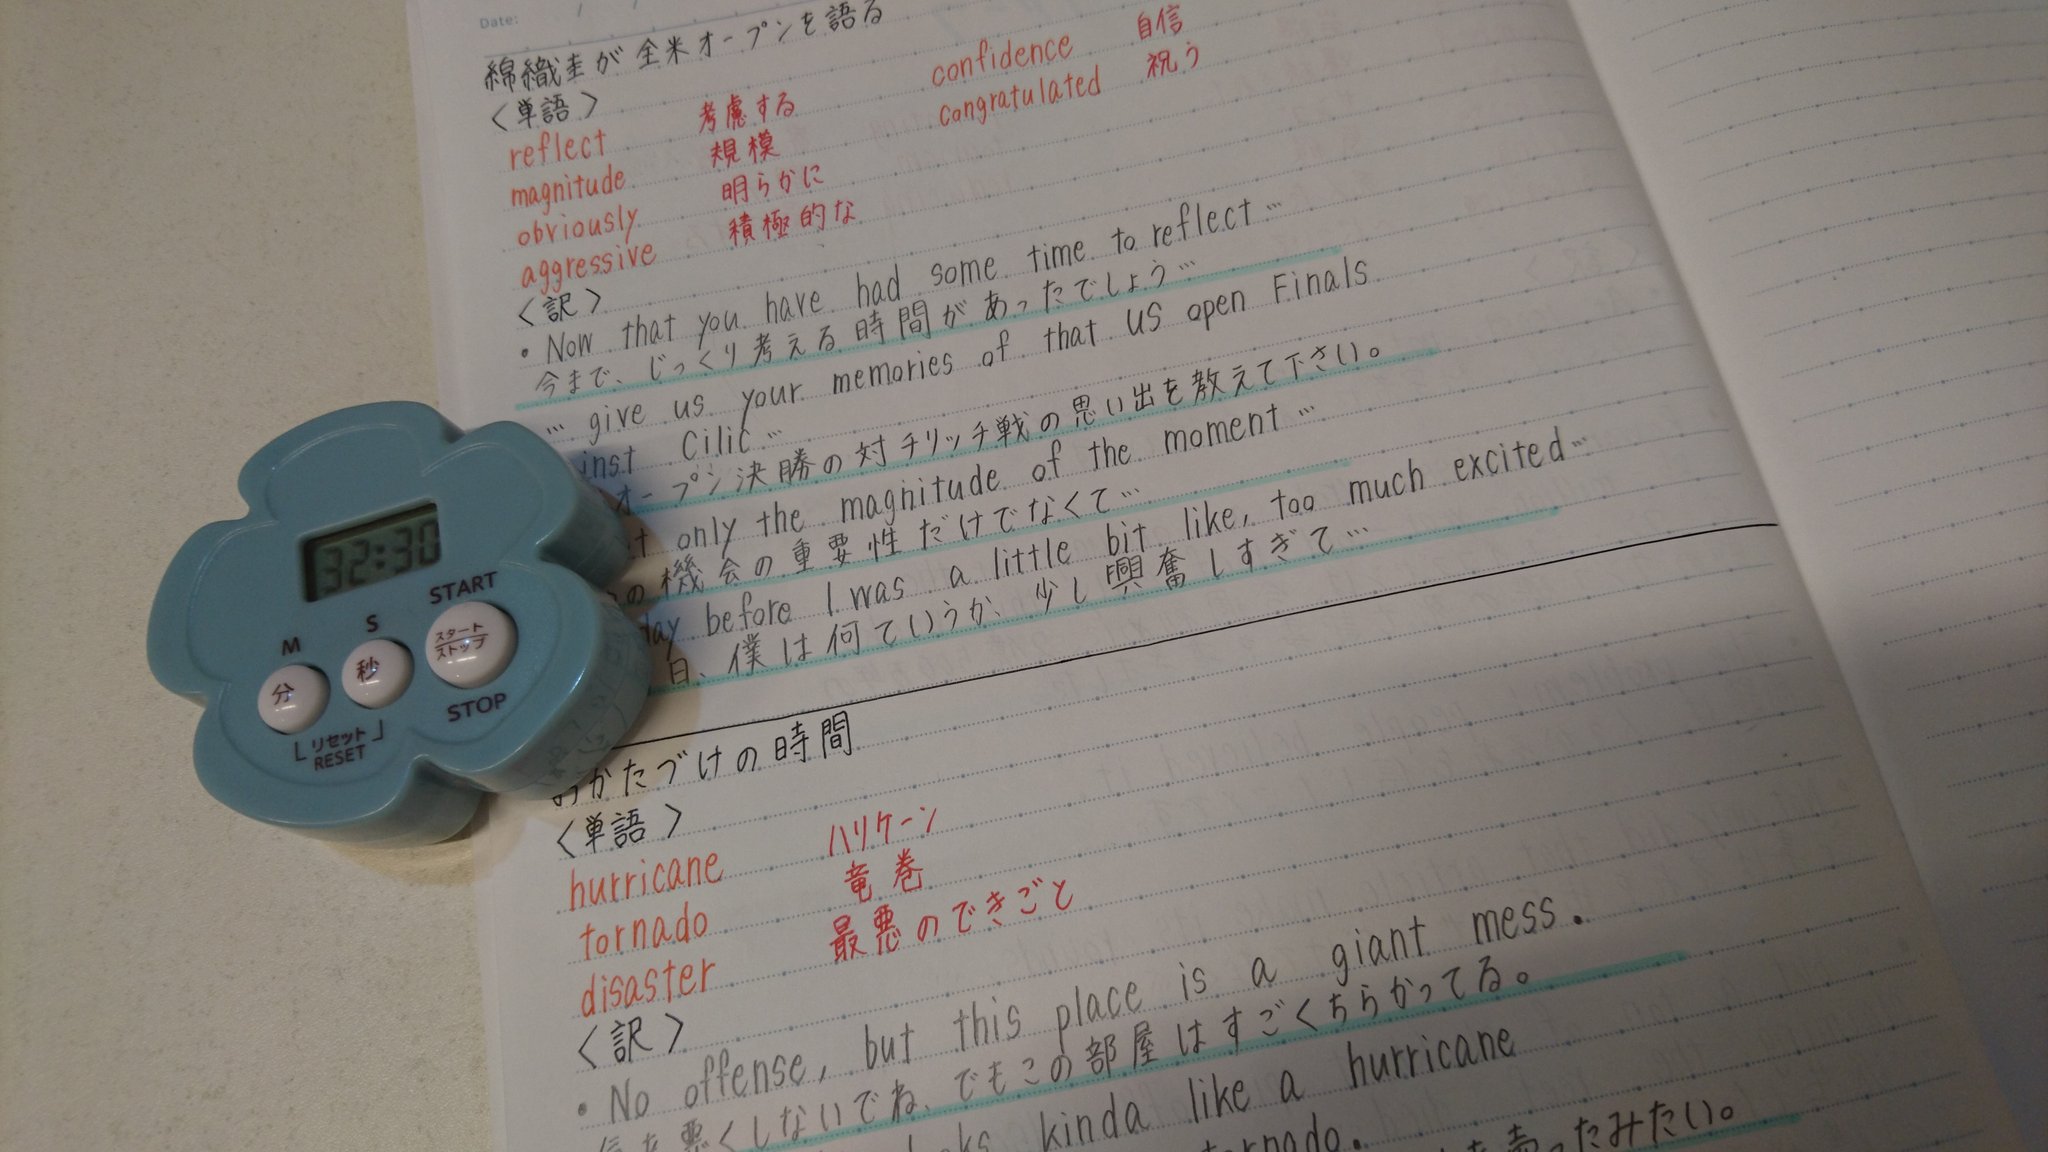 Date: / /
綿織圭が全米オープンを語る
〈単語〉
reflect 考慮する confidence 自信
magnitude 規模 congratulated 祝う
obviously 明らかに
aggressive 積極的な
〈訳〉
・Now that you have had some time to reflect…
今まで、じっくり考える時間があったでしょう…
… give us your memories of that US open Finals
inst Cilic…
オープン決勝の対チリッチ戦の思い出を教えて下さい。
only the magnitude of the moment…
の機会の重要性だけでなくて…
day before I was a little bit like, too much excited…
日、僕は何ていうか、少し興奮しすぎて…
おかたづけの時間
〈単語〉
hurricane ハリケーン
tornado 竜巻
disaster 最悪のできごと
〈訳〉
・No offense, but this place is a giant mess.
悪くしないでね、でもこの部屋はすごくちらかってる。
kinda like a hurricane
tornado.
たみたい。
32:30
M S START
分 秒 スタート/ストップ
リセット STOP
RESET